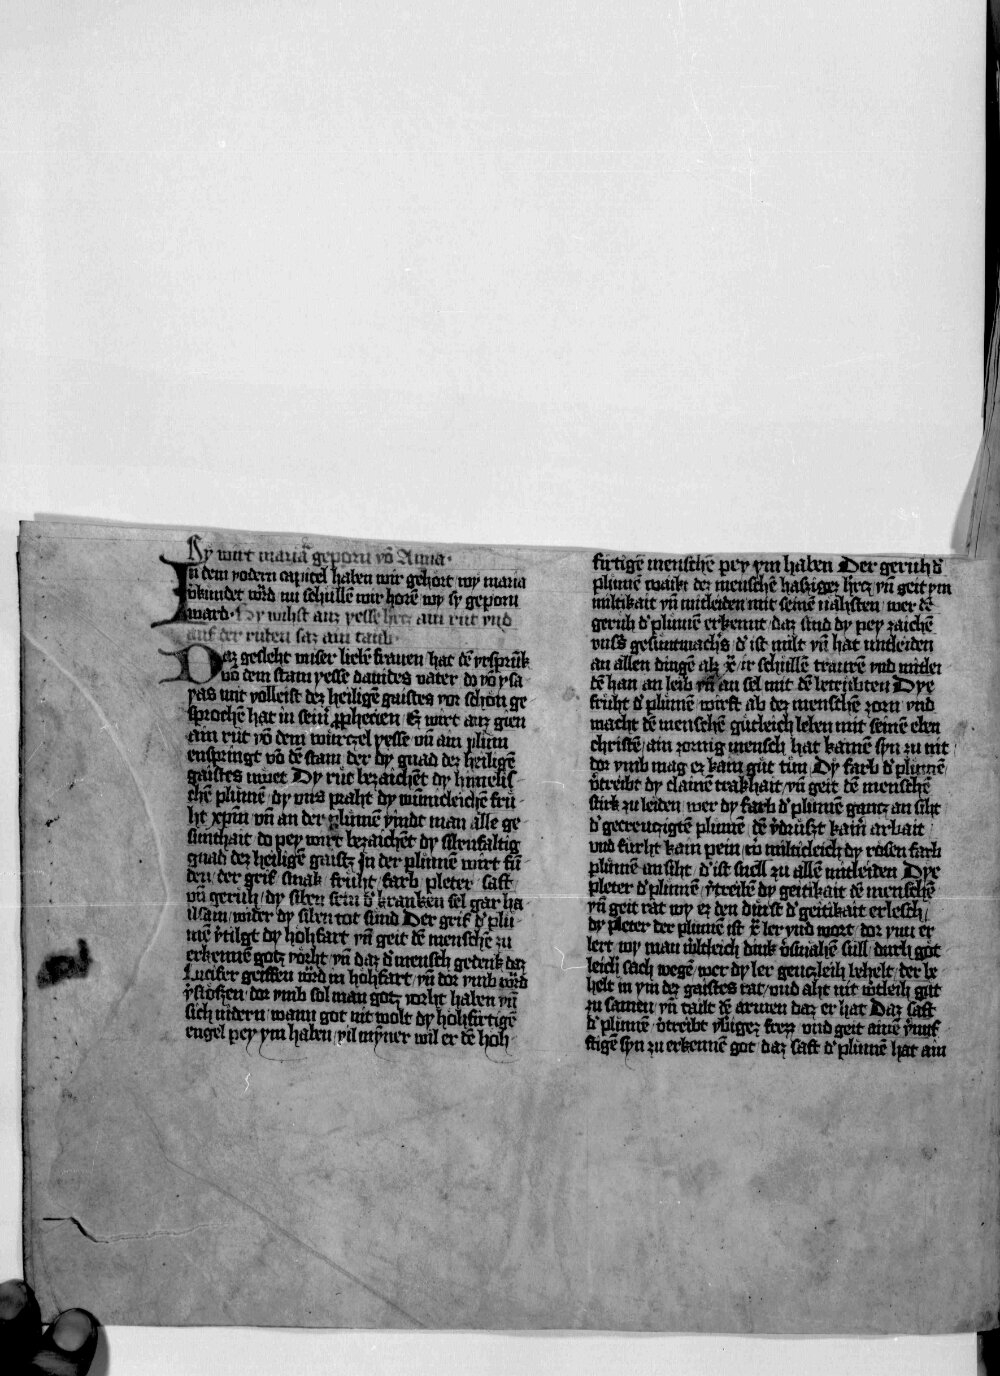 Hy wirt maria geporn võ Anna·
In dem vodern capitel haben wir gehort wy maria
v̓kundet w̓rd nu schullẽ wir horẽ wy sy geporn
ward· Hy wihst auz yesse hertz ain rut vnd
auf der ruten saz ain taub·
Daz gesleht vnser liebẽ frauen hat dẽ vrsprũk
võ dem stam yesse dauides vater do võ ysa
yas mit volleist dez heiligẽ gaistes vor schon ge
sprochẽ hat in sein̓ ꝓphecien / Ez wirt auz gien
ain rut võ dem wurtzel yesse vñ ain plum
enspringt võ dẽ stam der dy gnad dez heiligẽ
gaistes Dy rut bezaichẽt dy himelis
chẽ plumẽ / dy vns praht dy wũnicleichẽ fru
ht xpm vñ an der plumẽ vindt man alle ge
sunthait do pey wirt bezaichẽt dy sibenfaltig
gnad dez heiligẽ gaistz In der plumẽ wirt fũ
den / der grif smak / fruht / farb / pleter / saft /
vñ geruh / dy siben sein d̓ kranken sel gar ha
ilsam / wider dy siben tot sund Der grif d̓ plu
mẽ v̓tilgt dy hohfart vñ geit dẽ menschẽ zu
erkennẽ gotz vorht / vñ daz d̓ mensch gedenk daz
Lucifer geistes w̓rd in hohfart / vñ dor vmb w̓rd
v̓stoszen / dor vmb sol man gotz vorht haben vñ
sich nidern / wann got nit wolt dy hohfertigẽ
engel pey ym haben / vil mỹner wil er dẽ hoh
fertigẽ menschẽ pey ym haben Der geruh d̓
plumẽ waikt dez menschẽ hasziger hertz vñ geit ym
miltikait vñ mitleiden mit seinẽ nahsten / wer dẽ
geruh d̓ plumẽ erkennt / daz sind dy pey zaichẽ
vnsers gesuntmachers d̓ ist milt vñ hat mitleiden
an allen dingẽ alz x̃ / ir schullẽ traurẽ vnd mitlei
dẽ han an leib vñ an sel mit dẽ betrubten Dye
fruht d̓ plumẽ / wirft ab dez menschẽ zorn / vnd
macht dẽ menschẽ gutleich leben mit seinẽ eben
christẽ / ain zornig mensch hat kainẽ syn zu nit
dor vmb mag er kain gut tun / Dy farb d̓ plumẽ
v̓treibt dy clainẽ trakhait / vñ geit dẽ menschẽ
sterk zu leiden / wer dy farb d̓ plumẽ gantz an siht
d̓ gecreutzigtẽ plumẽ / dẽ v̓druszt kain̓ arbait
vnd furht kain pein / w̓ miltcleich dy rosen farb
plumẽ an siht / d̓ ist snell zu allẽ mitleiden Dye
pleter d̓ plumẽ / v̓treibẽ dy geitikait dẽ menschẽ
vñ geit rat wy er den durst d̓ geitikait erlesch /
dy pleter der plumẽ ist x̃ ler vnd wort / dor ynn er
lert wy man w̓ltleich dink v̓smahẽ sull / durch got
leich̓ sach wegẽ / wer dy ler gentzleih behelt / der be
helt in ym dez gaistes rat / vnd aht nit w̓tleih gut
zu samen / vñ tailt dẽ armen daz er hat Daz saft
d̓ plumẽ / v̓treibt vbigez frezz vnd geit aine v̓nuf
ftigẽ syn zu erkennẽ got / daz saft d̓ plumẽ hat ain